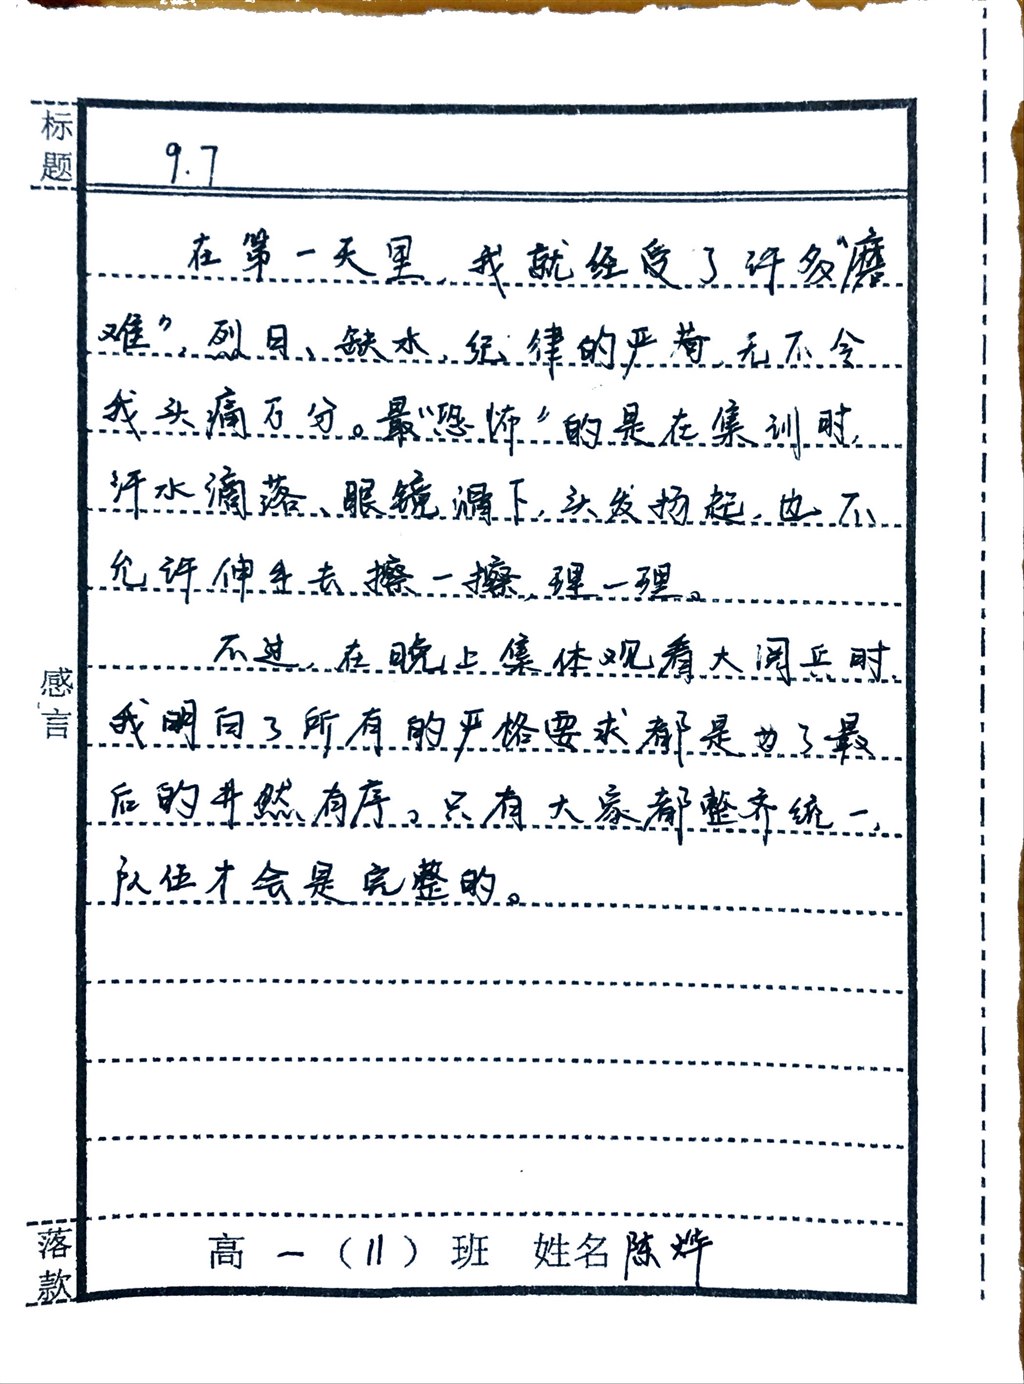 标题
9.7
在第一天里，我就经受了许多“磨
难”，烈日、缺水、纪律的严苛，无不令
我头痛万分。最“恐怖”的是在集训时，
汗水滴落、眼镜滑下，头发扬起，也不
允许伸手去擦一擦，理一理。
不过，在晚上集体观看大阅兵时，
我明白了所有的严格要求都是为了最
后的井然有序。只有大家都整齐统一，
队伍才会是完整的。
感言
落款
高一（11）班 姓名陈烨